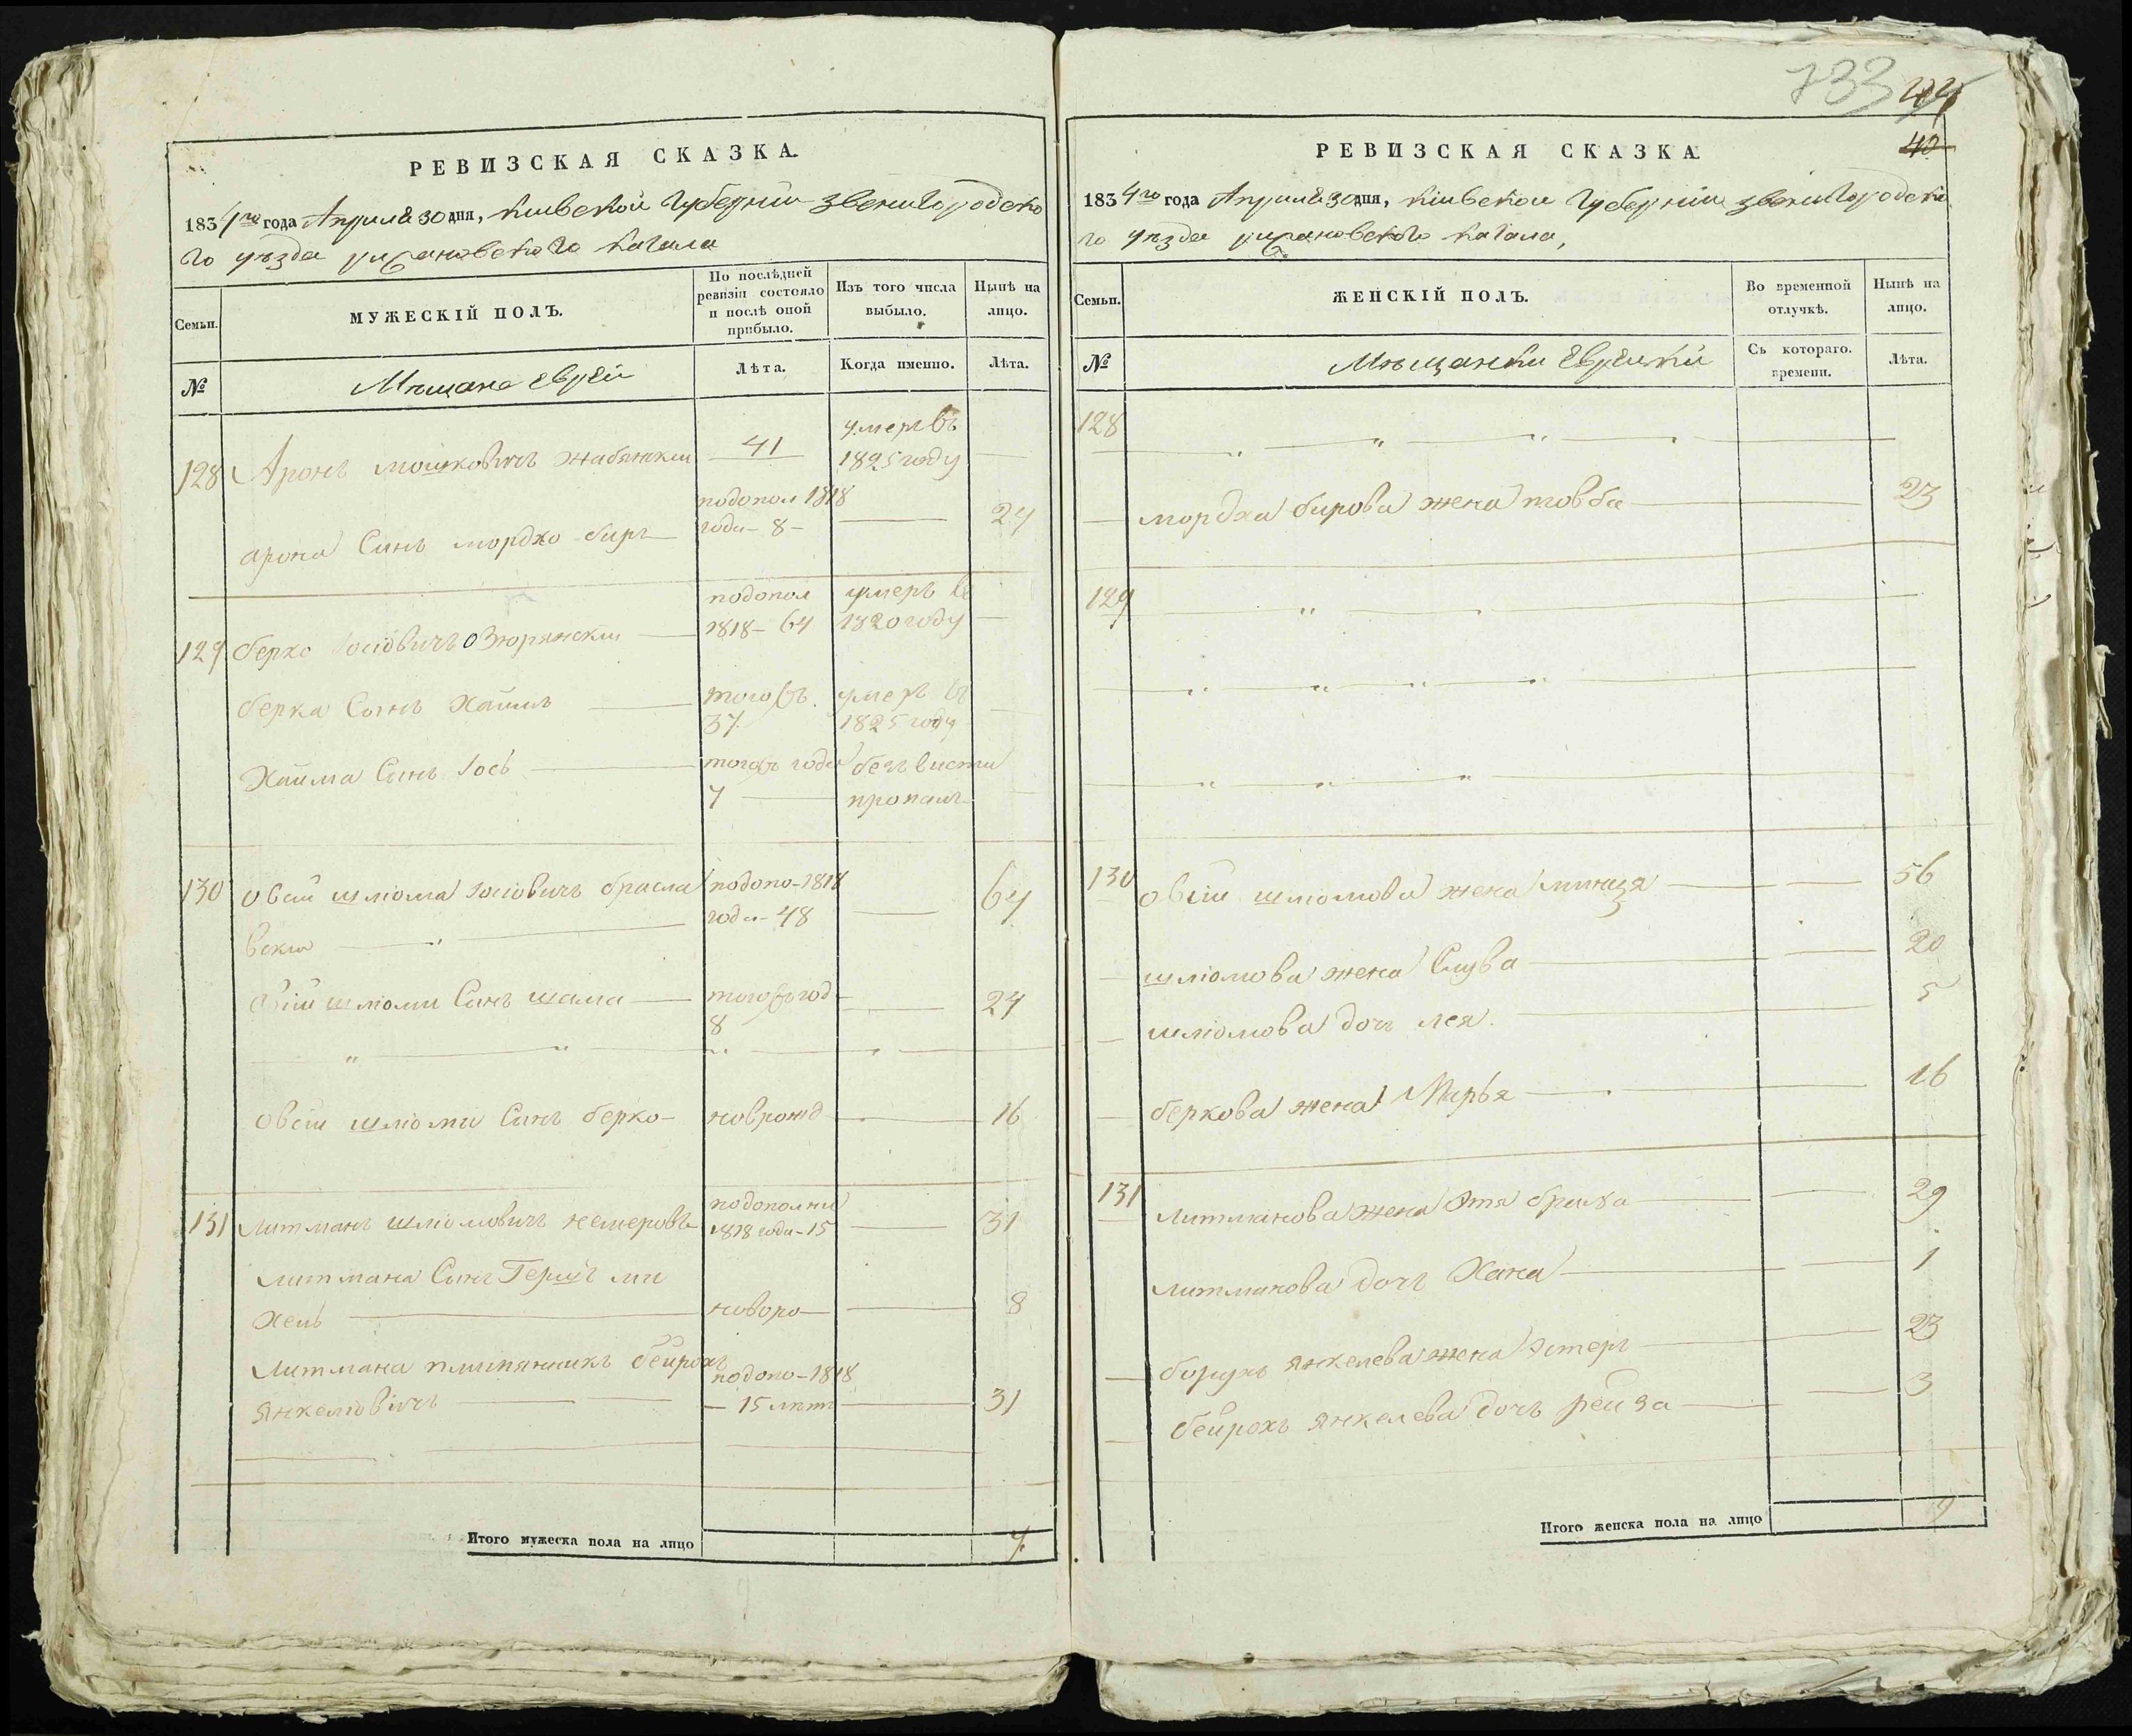 733 44
РЕВИЗСКАЯ СКАЗКА.
1834го года Апреля 30 дня, Киевской Губернии звенигородско
го уѣзда рижановского кагала
Семьи.
МУЖЕСКІЙ ПОЛЪ.
По послѣдней ревизіи состояло и послѣ оной прибыло.
Изъ того числа выбыло.
Нынѣ на лицо.
№
Мѣщане Евреи
Лѣта.
Когда именно.
Лѣта.
128 Аронъ мошковичъ жабянски 41 умеръ въ
1825 году
арона Синъ мордко биръ подопол 1818
годи - 8 - 24
129 берко Иосіовичъ Озюрянски подопол
1818 - 64 умеръ в
1820 году
берка Сынъ Хаимъ того въ
37. умеръ въ
1825 году
Хаима Синъ Іось тогожъ года
7 безъ висти
пропалъ
130 овсій шліома Іосіовичъ брасла подопо-1818
годи - 48 64
вски
овсій шліоми Синъ шама того год
8 24
овсій шліоми Синъ берко новрожд 16
131 литманъ шліомовичъ немеровъ подополни
1818 годи-15 31
литмана Синъ Гершъ ми
хель новоро 8
литмана племянникъ бейрохъ подопо-1818
янкеліовичъ 15 лѣт 31
Итого мужеска пола на лицо 7.
РЕВИЗСКАЯ СКАЗКА.
40
1834го года Апреля 30 дня, Киевской Губерніи звенигородско
го уѣзда рижановского кагала,
Семьи.
ЖЕНСКІЙ ПОЛЪ.
Во временной отлучкѣ.
Нынѣ на лицо.
№
Мѣщанки Еврейки
Съ котораго времени.
Лѣта.
128
мордха бирова жена товба 23
129
130 овсій шліомова жена минця 56
шліомова жена Слува 20
шліомова дочъ лея. 5
беркова жена Мирья 16
131 литманова жена Этя брыха 29
литманова дочъ Хана 1
борухъ янкелева жена Эстеръ 23
бейрохъ янкелева дочъ рейза 3
Итого женска пола на лицо 9